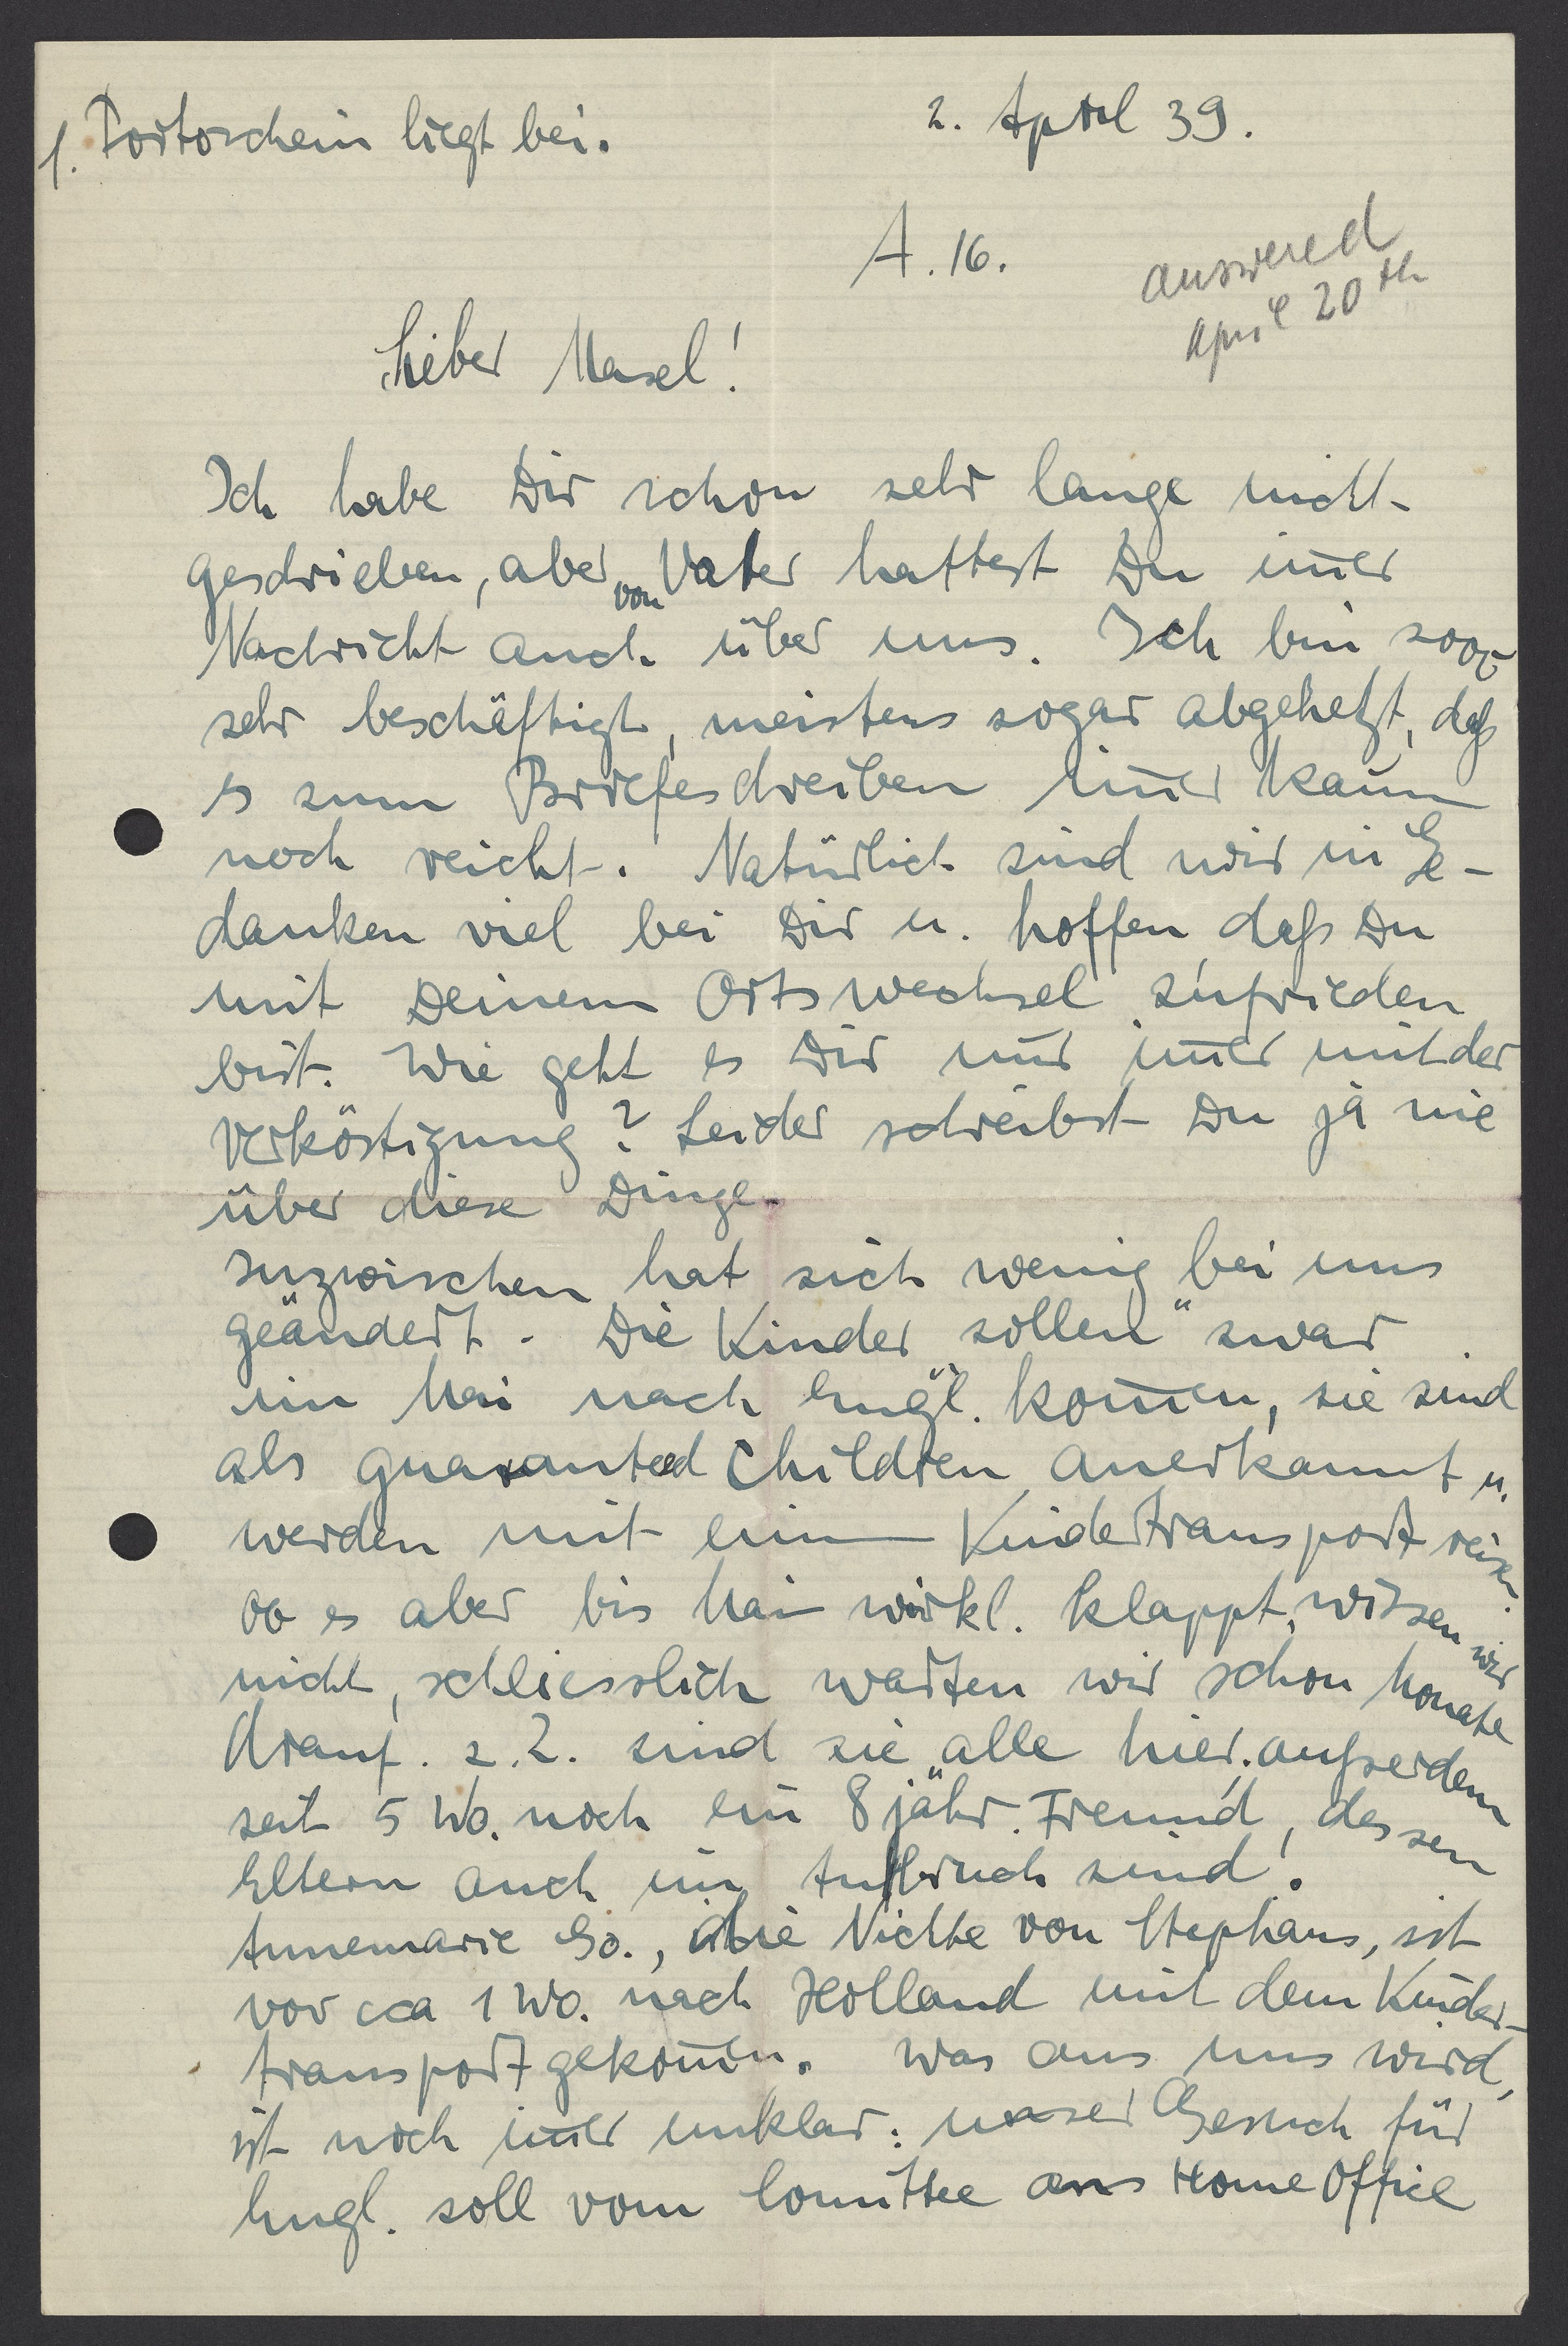 1. Portoschein liegt bei.
2. April 39.
A. 16.
answered
April 20th
Lieber Masel!
Ich habe Dir schon sehr lange nicht
geschrieben, aber von Vater hattest Du im̄er
Nachricht auch über uns. Ich bin
sehr beschäftigt, meistens sogar abgehetzt, daß
es zum Briefeschreiben im̄er kaum
noch reicht. Natürlich sind wir in Ge-
danken viel bei Dir u. hoffen, daß Du
mit Deinem Ortswechsel zufrieden
bist. Wie geht es Dir nur im̄er mit der
Verköstigung? Leider schreibst Du ja nie
über diese Dinge.
Inzwischen hat sich wenig bei uns
geändert. Die Kinder „sollen" zwar
im Mai nach Engl. kom̄en, sie sind
als guaranteed Children anerkannt u.
werden mit einem Kindertransport reisen.
ob es aber bis Mai wirkl. klappt, wissen wir
nicht, schliesslich warten wir schon Monate
drauf. z. Z. sind sie alle hier, außerdem
seit 5 Wo. noch ein 8 jähr. Freund, dessen
Eltern auch im Aufbruch sind!
Annemarie Go., die Nichte von Stephans, ist
vor cca 1 Wo. nach Holland mit dem Kinder-
transport gekom̄en. Was aus uns wird,
ist noch im̄er unklar: unser Gesuch für
Engl. soll vom Comittee ans Home Office